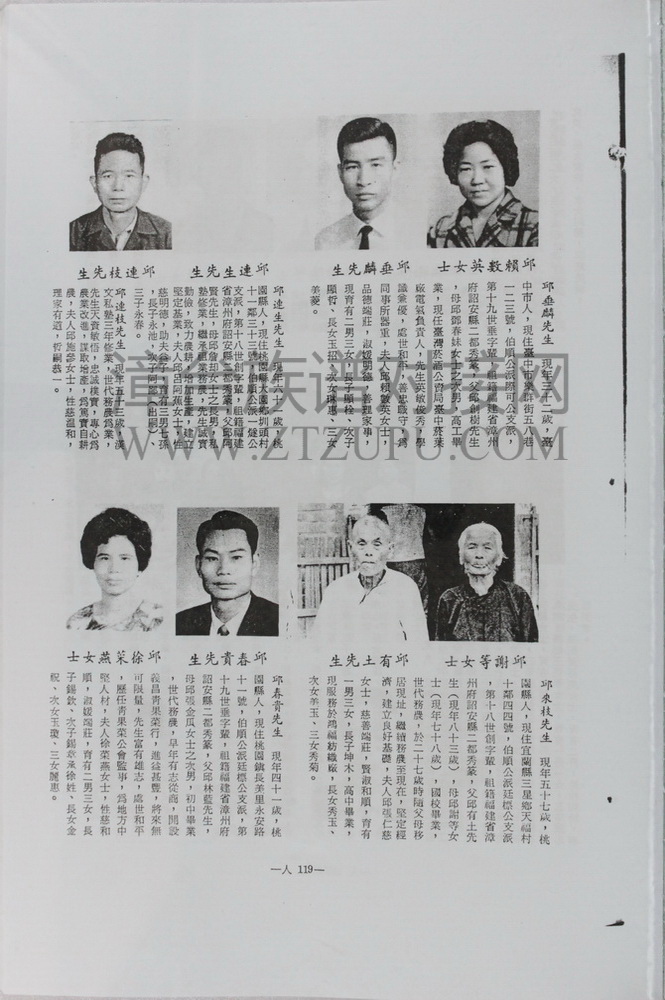 邱賴數英女士
邱垂麟先生
邱連生先生
邱連枝先生
邱垂麟先生　現年三十二歲，臺
中市人，現住臺中市樂群街五八巷
一二三號，伯順公派際可公支派，
第十九世垂字輩，祖籍福建省漳州
府詔安縣二都秀篆，父邱創樹先生
，母邱鄧春妹女士之次男，高工畢
業，現任臺灣菸酒公賣局臺中菸葉
廠電氣負責人，先生英敏俊秀，學
識兼優，處世和平，善忠職守，為
同事所器重，夫人邱賴數英女士，
品德端莊，淑媛明德，善理家事，
現育有二男三女，長子顯栓、次子
顯哲、長女玉招、次女琳惠、三女
美菱。
邱連生先生　現年六十一歲，桃
園縣人，現住桃園縣大園鄉圳頭村
十一鄰三十二號，伯順公派一燧公
支派，第十八世創字輩，祖籍福建
省漳州府詔安縣二都秀篆，父邱阿
賢先生，母邱詹却女士之長男，私
塾修業，繼承祖業務農，先生誠實
勤儉，致力農耕，增加生產，建立
堅定基業，夫人邱呂阿蕉女士，性
慈明德，助夫益子，育有三男七孫
，長子永池、次子阿壁（出嗣）、
三子永春。
邱連枝先生　現年五十三歲，漢
文私塾三年修業，世代務農為業，
先生天資敏悟，忠誠樸實，專心為
農業改進，謀取增產，為篤實自耕
農，夫人邱施參女士，性慈溫和，
理家有道，哲嗣恭一。
邱謝等女士
邱有土先生
邱春貴先生
邱徐菜燕女士
邱象枝先生　現年五十七歲，桃
園縣人，現住宜蘭縣三星鄉天福村
十鄰四四號，伯順公派廷標公支派
，第十八世創字輩，祖籍福建省漳
州府詔安縣二都秀篆，父邱有土先
生（現年八十三歲），母邱謝等女
士（現年七十八歲），國校畢業，
世代務農，於二十七歲時隨父母移
居現址，繼續務農至現在，堅定經
濟，建立良好基礎，夫人邱張仁慈
女士，慈善端莊，賢淑和順，育有
一男三女，長子坤木，高中畢業，
現服務於鴻福紡織廠，長女秀玉、
次女美玉、三女秀菊。
邱春貴先生　現年四十一歲，桃
園縣人，現住桃園鎮長美里永安路
一〇號，伯順公派廷標公支派，第
十九世垂字輩，祖籍福建省漳州府
詔安縣二都秀篆，父邱林藍先生，
母邱張金瓜女士之次男，初中畢業
，世代務農，早年有志從商，開設
義昌青果菜行，進益甚豐，將來無
可限量，先生富有雄志，處世和平
，歷任青果菜公會監事，為地方中
堅人材，夫人徐菜燕女士，性慈和
順，淑媛端莊，育有二男三女，長
子錫欽、次子錫章承徐姓、長女金
祝、次女玉瓊、三女麗惠。
—人 119—
漳台族谱对接网
WWW.ZTZUPU.COM